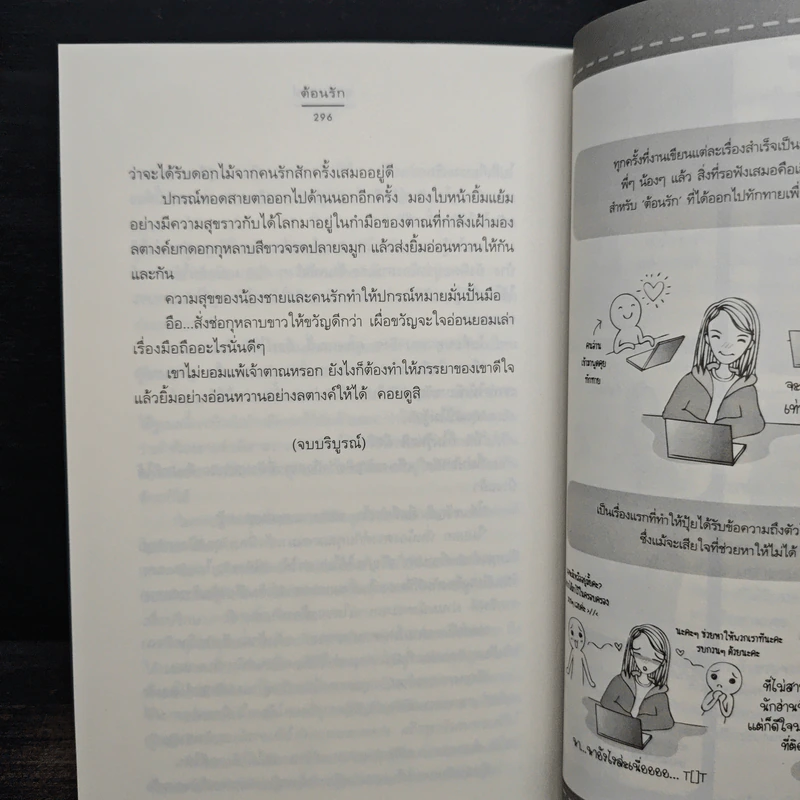 ต้อนรัก
296
ว่าจะได้รับดอกไม้จากคนรักสักครั้งเสมออยู่ดี
ปกรณ์ทอดสายตาออกไปด้านนอกอีกครั้ง มองใบหน้ายิ้มแย้ม
อย่างมีความสุขราวกับได้โลกมาอยู่ในกำมือของตาณที่กำลังเฝ้ามอง
ลตางค์ยกดอกกุหลาบสีขาวจรดปลายจมูก แล้วส่งยิ้มอ่อนหวานให้กัน
และกัน
ความสุขของน้องชายและคนรักทำให้ปกรณ์หมายมั่นปั้นมือ
อือ...สั่งช่อกุหลาบขาวให้ขวัญดีกว่า เผื่อขวัญจะใจอ่อนยอมเล่า
เรื่องมือถืออะไรนั่นดีๆ
เขาไม่ยอมแพ้เจ้าตาณหรอก ยังไงก็ต้องทำให้ภรรยาของเขาดีใจ
แล้วยิ้มอย่างอ่อนหวานอย่างลตางค์ให้ได้ คอยดูสิ
(จบบริบูรณ์)
ทุกครั้งที่งานเขียนแต่ละเรื่องสำเร็จเป็น
พี่ๆ น้องๆ แล้ว สิ่งที่รอฟังเสมอคือ
สำหรับ 'ต้อนรัก' ที่ได้ออกไปทักทาย
คนอ่าน
เข้ามาพูดคุย
ทักทาย
เป็นเรื่องแรกที่ทำให้ปุ้ยได้รับข้อความถึงตัว
ซึ่งแม้จะเสียใจที่ช่วยหาให้ไม่ได้
นะคะๆ ช่วยหาให้พวกเราทีนะคะ
รบกวนๆ ด้วยนะคะ
ที่ไม่สา
นักอ่าน
แต่ก็ดีใจ
ที่ติด
หา...หายังไงล่ะเนี่ยอออ... T[]T